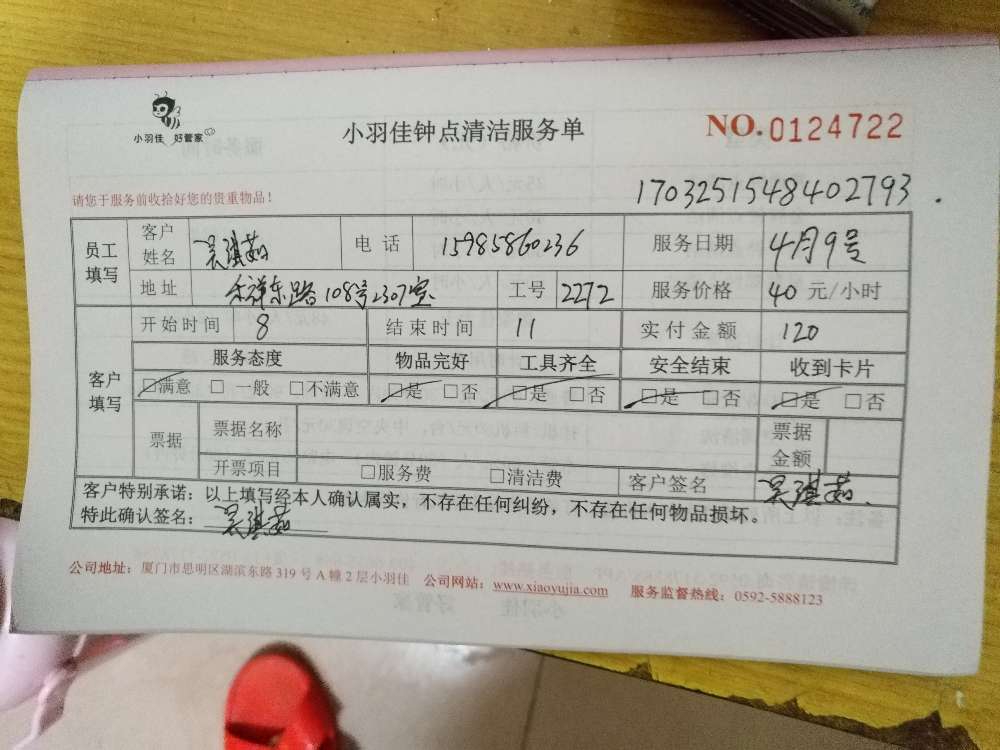 小羽佳 好管家
小羽佳钟点清洁服务单
NO.0124722
请您于服务前收拾好您的贵重物品！
1703251548402793.
员工填写 客户姓名 吴琪茹 电话 15985860236 服务日期 4月9号
地址 禾祥东路108号2307室 工号 2272 服务价格 40 元/小时
客户填写 开始时间 8 结束时间 11 实付金额 120
服务态度 物品完好 工具齐全 安全结束 收到卡片
☑满意 □ 一般 □不满意 ☑是 □否 ☑是 □否 ☑是 □否 ☑是 □否
票据 票据名称 票据金额
开票项目 □服务费 □清洁费 客户签名 吴琪茹
客户特别承诺：以上填写经本人确认属实，不存在任何纠纷，不存在任何物品损坏。
特此确认签名：吴琪茹
公司地址：厦门市思明区湖滨东路 319 号 A 幢 2 层小羽佳 公司网站：www.xiaoyujia.com 服务监督热线：0592-5888123